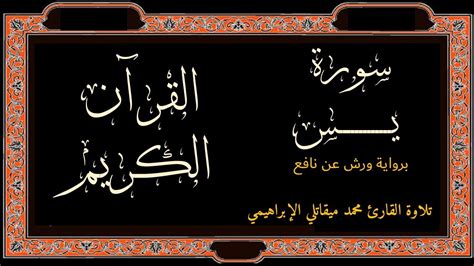 سورة
يــس
برواية ورش عن نافع
تلاوة القارئ محمد ميقاتلي الإبراهيمي
القرآن
الكريم